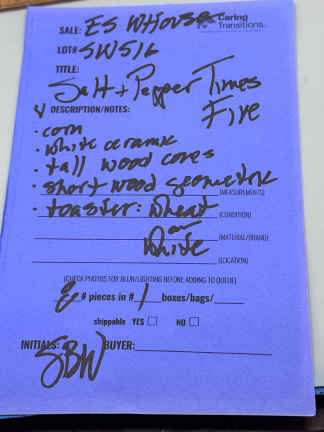 SALE: ES WHouse Caring
Transitions.
LOT# SW516
TITLE:
Salt + Pepper Times
Five
DESCRIPTION/NOTES:
· corn
· white ceramic
· tall wood cones
· short wood geometric
(MEASUREMENTS)
· toaster: wheat
(CONDITION)
on
White
(MATERIAL/BRAND)
(LOCATION)
(CHECK PHOTOS FOR BLUR/LIGHTING BEFORE ADDING TO QUEUE)
# pieces in # 1 boxes/bags/
shippable YES NO
INITIALS: SBW BUYER: